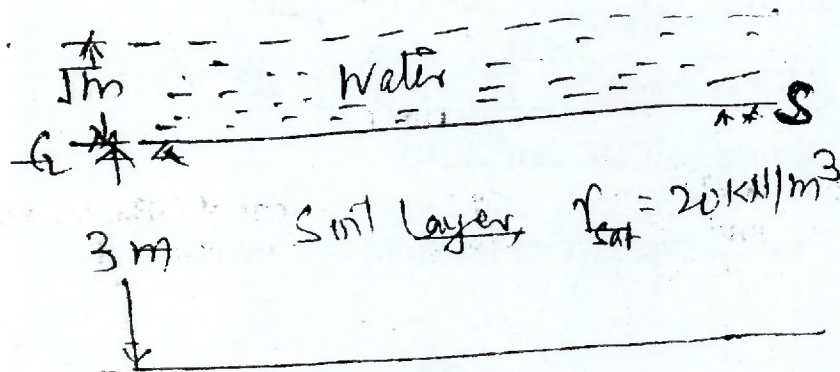 1m Water
G S
3m Soil Layer, γsat = 20 kN/m³